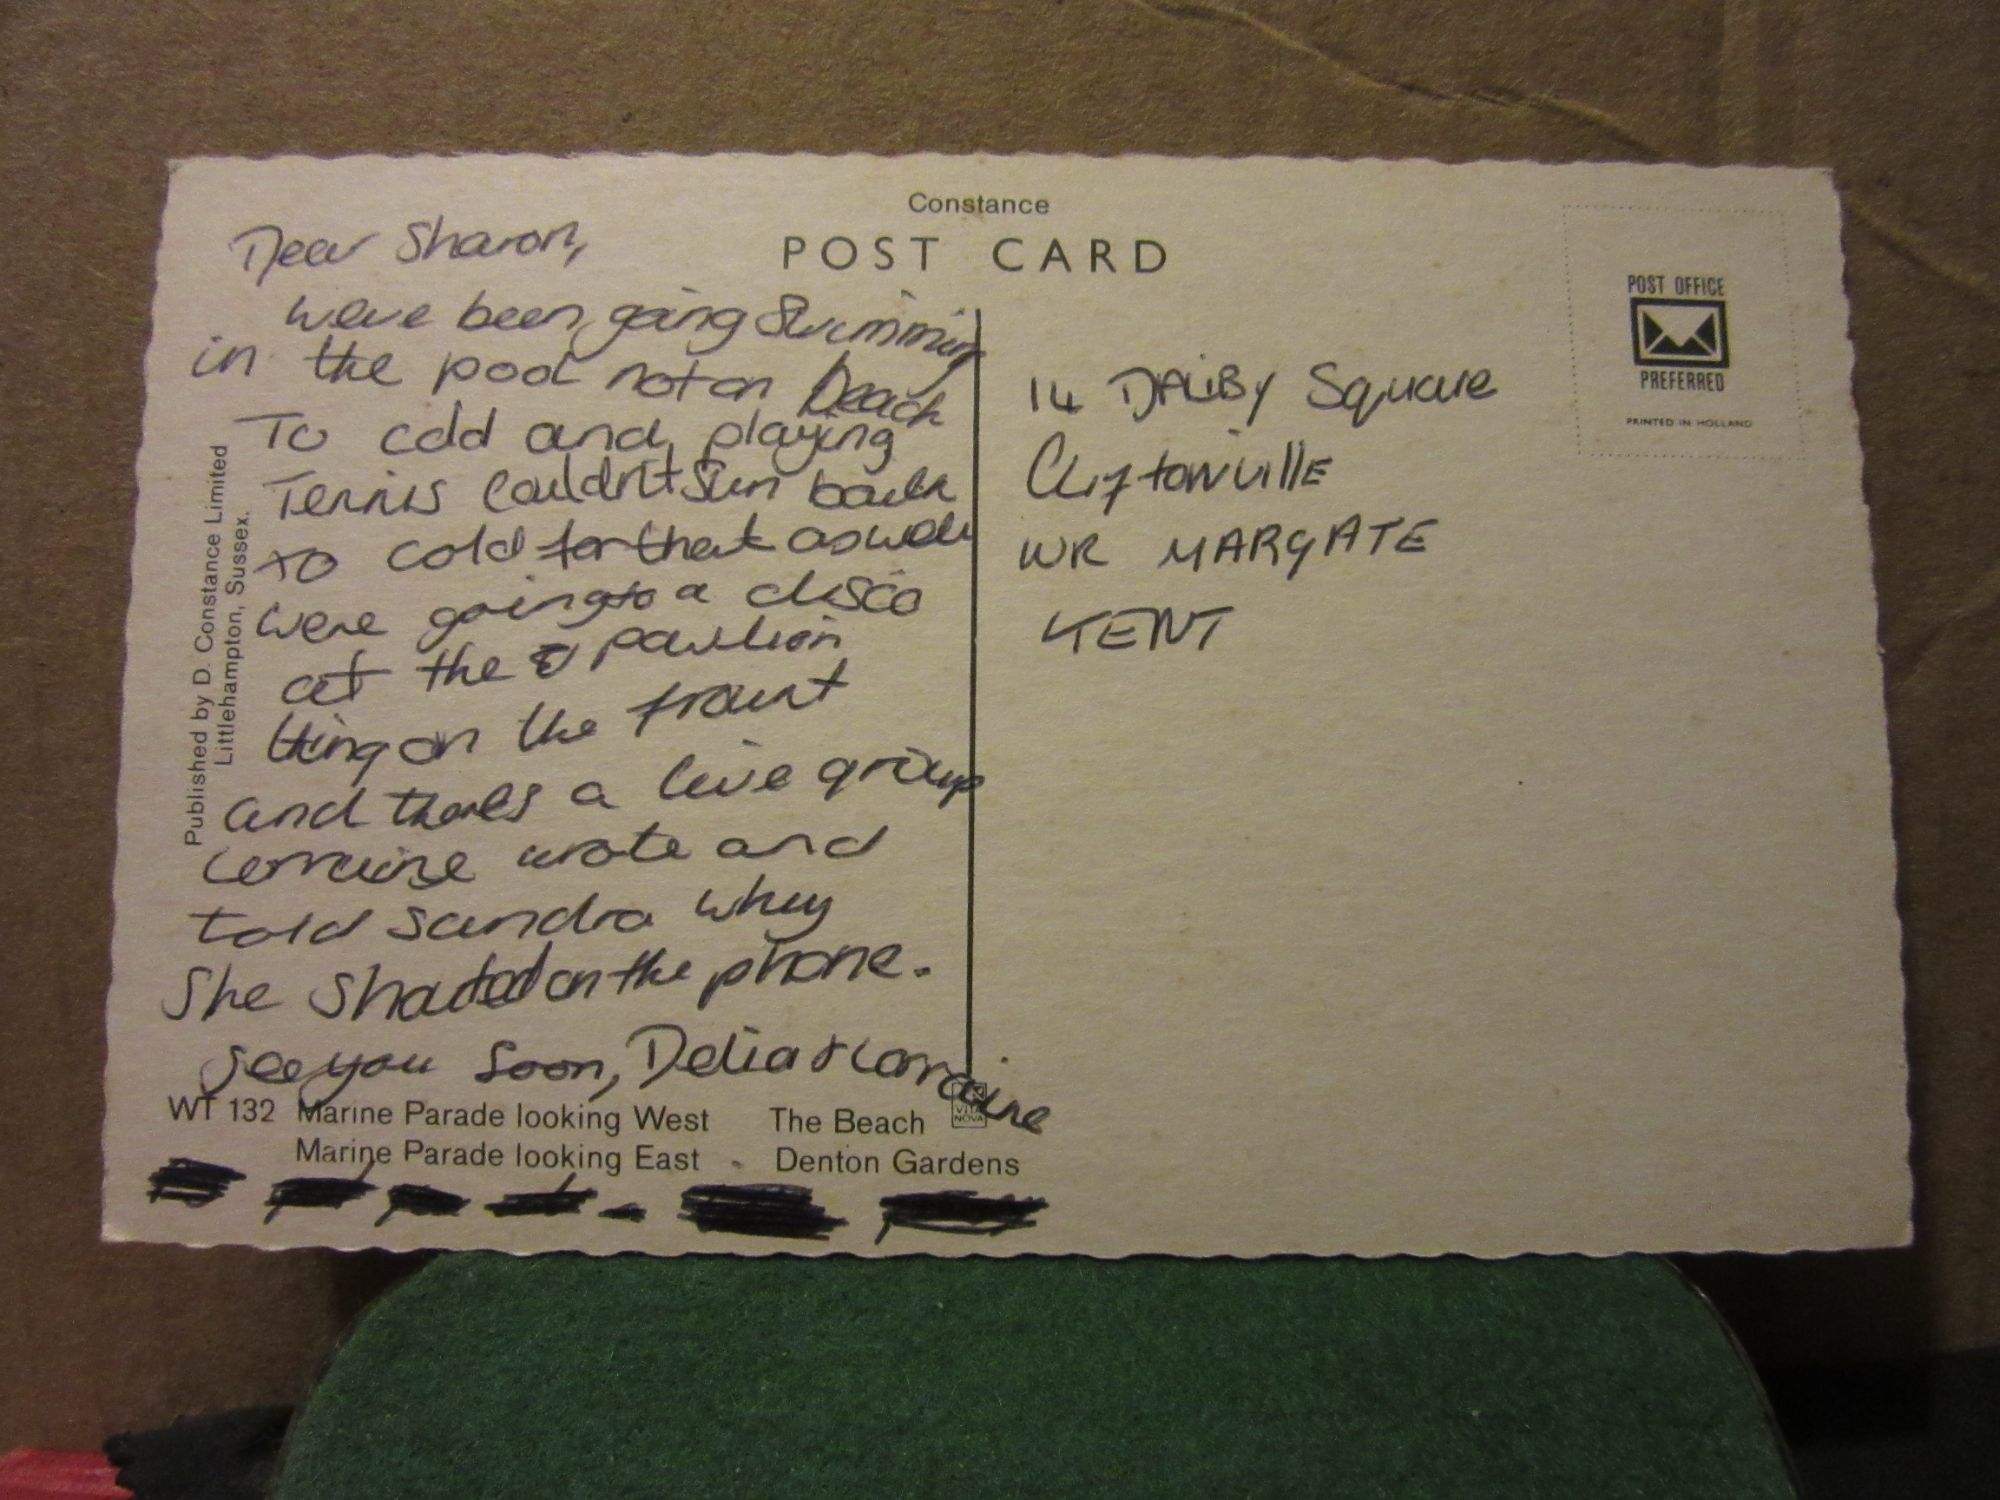 Constance
POST CARD
Dear Sharon,
weve been going Swimming
in the pool not on beach
To cold and playing
Tennis couldn't sun bath
to cold for that aswell
were going to a disco
at the pavilion
thing on the frount
and theres a live group
Lorraine wrote and
told sandra whey
She shouted on the phone.
see you soon, Delia & Lorraine
14 DALBY Square
Cliftonville
NR MARGATE
KENT
POST OFFICE
PREFERRED
PRINTED IN HOLLAND
Published by D. Constance Limited
Littlehampton, Sussex.
WT 132 Marine Parade looking West The Beach
Marine Parade looking East Denton Gardens
VITA
NOVA